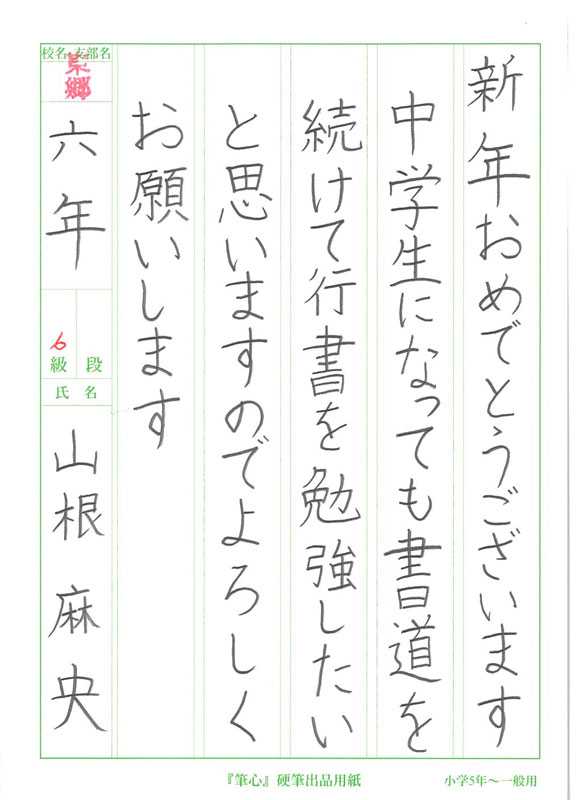 新年おめでとうございます
中学生になっても書道を
続けて行書を勉強したい
と思いますのでよろしく
お願いします
校名・支部名
六年
6
級 段
氏 名
山根 麻央
『筆心』硬筆出品用紙
小学5年〜一般用